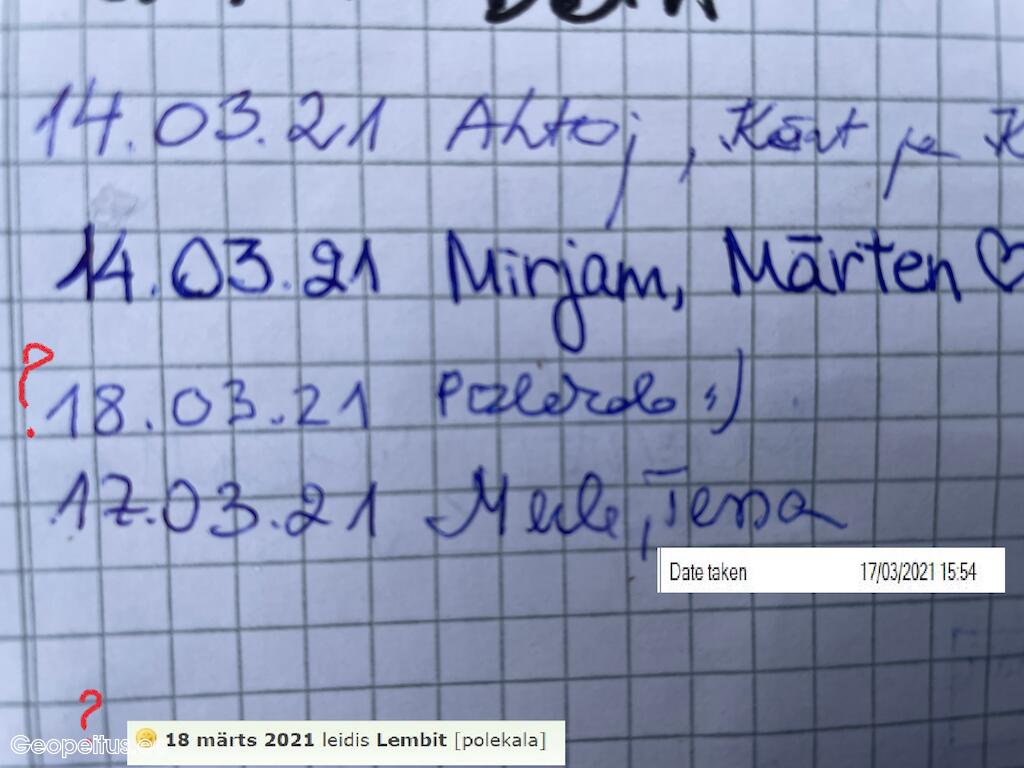 14.03.21 Ahtoj, Kärt ja K
14.03.21 Mirjam, Märten ♡
?
18.03.21 :)
17.03.21 Merle, Teresa
Date taken 17/03/2021 15:54
?
18 märts 2021 leidis Lembit [polekala]
Geopeitus.e